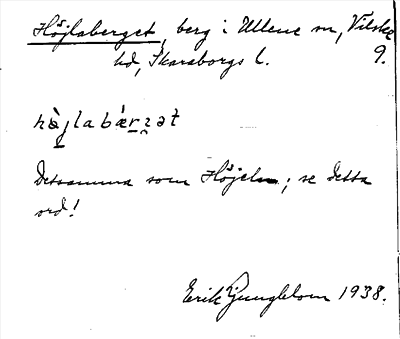 Höjlaberget, berg i Ullene sn, Vilske
hd, Skaraborgs l. 9.
hàjlabárzət
Detsamma som Höjeln; se detta
ord!
Erik Ljungblom 1938.